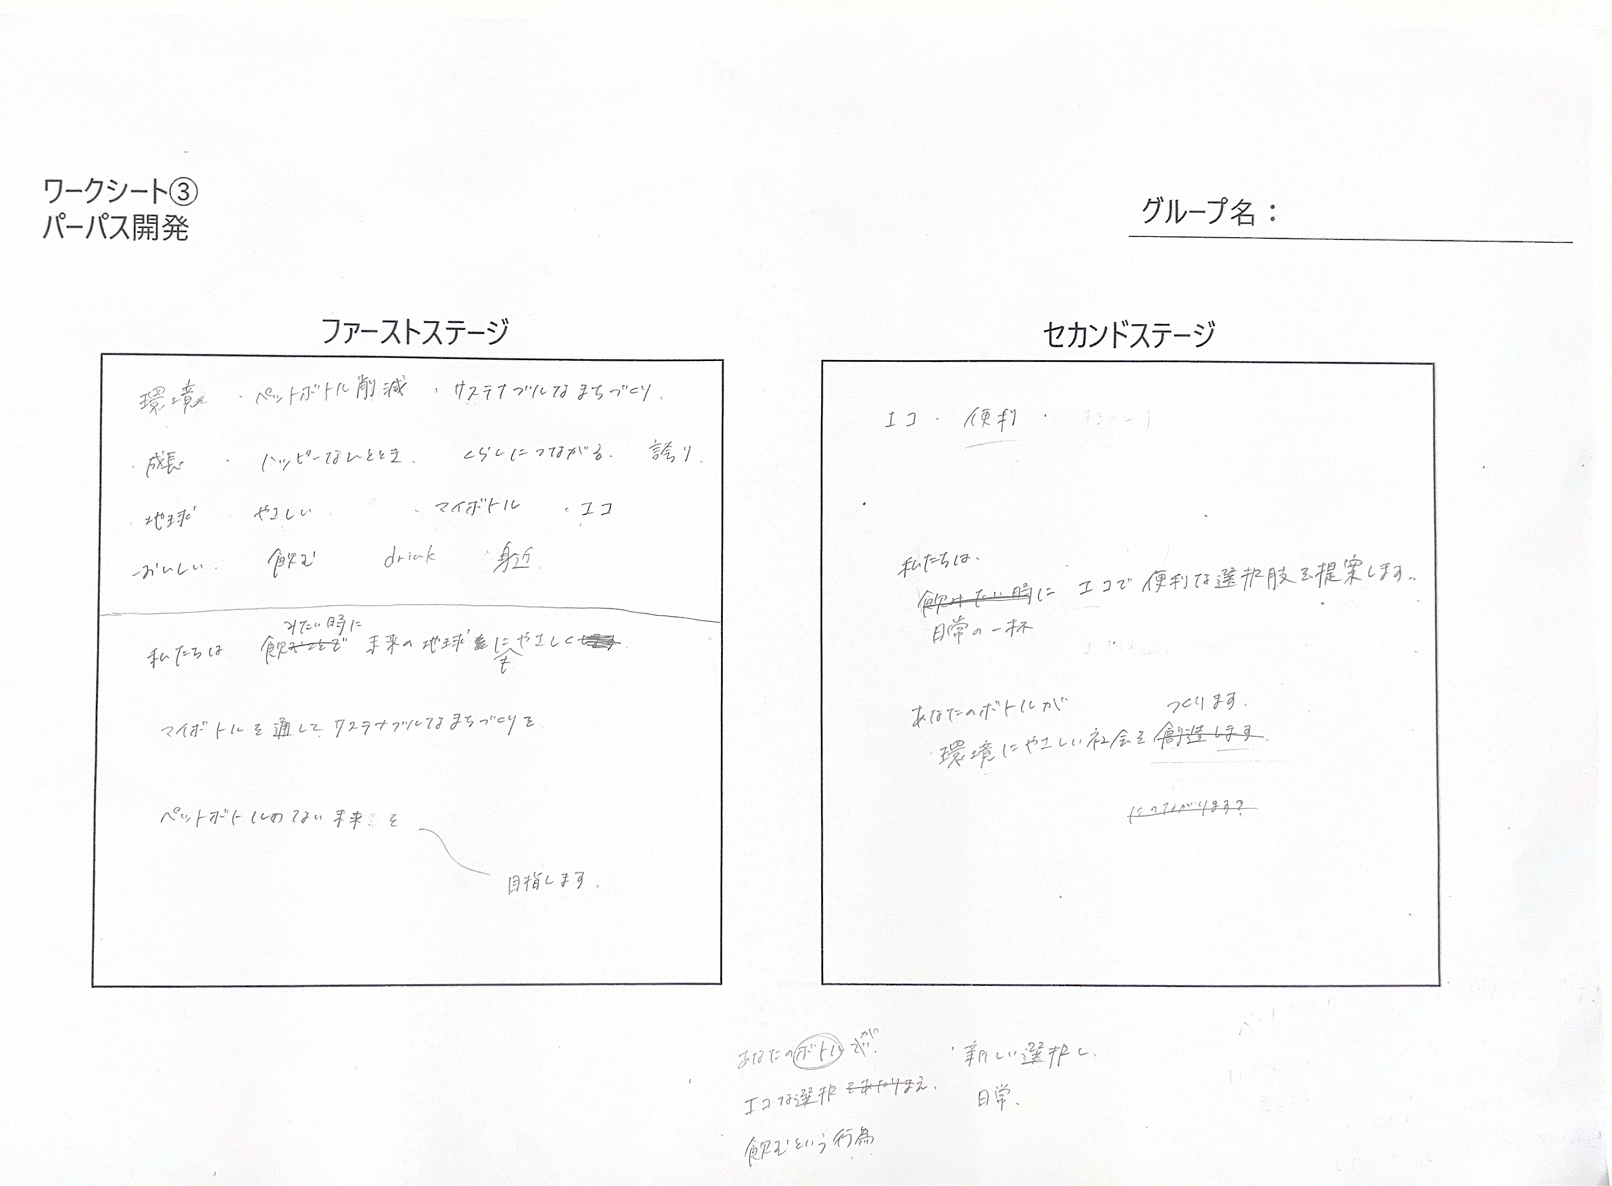 ワークシート③
パーパス開発
グループ名：
ファーストステージ
環境 ・ペットボトル削減 ・サステナブルなまちづくり.
・成長 ・ハッピーなひととき. くらしにつながる. 誇り.
・地球 やさしい ・マイボトル ・エコ
・おいしい. 飲む drink ・身近.
みたい時に
私たちは 飲むことを 未来の地球にやさしく
も
マイボトルを通してサステナブルなまちづくりを
ペットボトルのない未来を
目指します.
セカンドステージ
エコ・便利・
私たちは.
飲みたい時に エコで便利な選択肢を提案します.
日常の一杯
あなたのボトルが つくります.
環境にやさしい社会を創造します.
につながります?
あなたのボトルが.
エコな選択をあたりまえ.
飲むという行為
・新しい選択し.
日常.